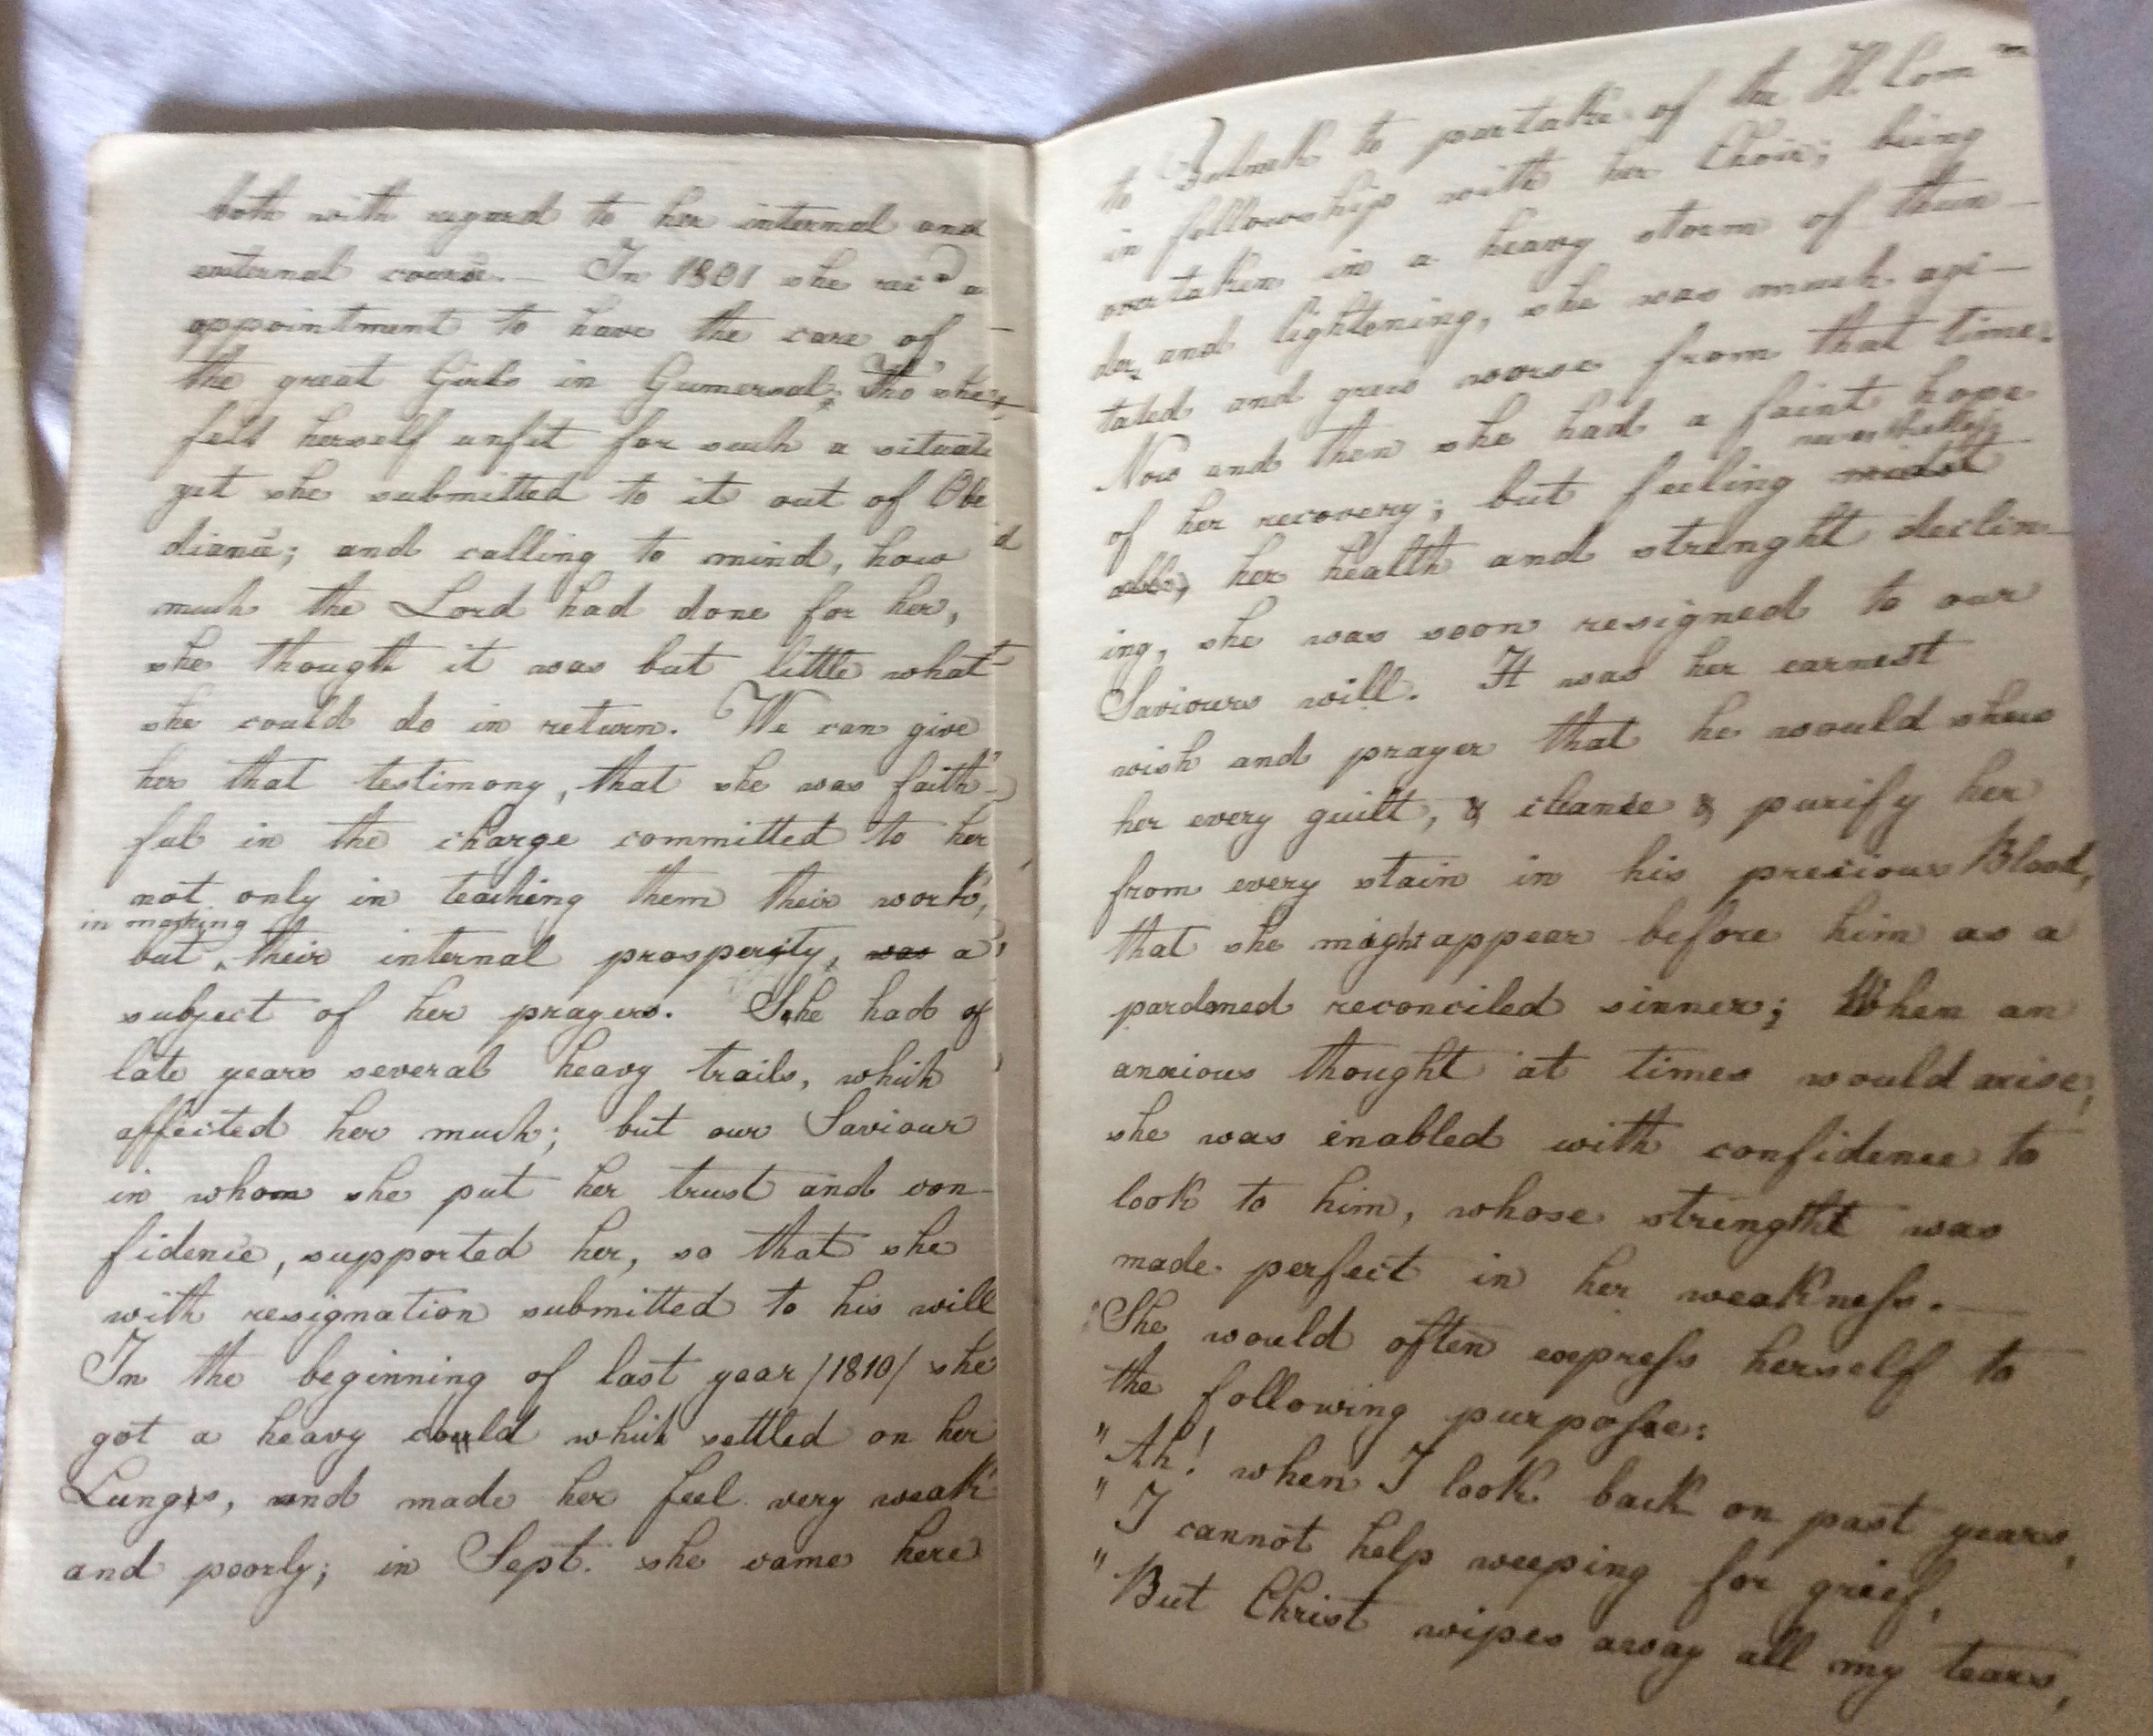 both with regard to her internal and
external course. — In 1801 she recd a
appointment to have the care of
the great Girls in Gumersal; Tho' she
felt herself unfit for such a situati
yet she submitted to it out of Obe
diance; and calling to mind, how
much the Lord had done for her,
she thought it was but little what
she could do in return. We can give
her that testimony, that she was faith-
ful in the charge committed to her
not only in teaching them their work,
in making
but their internal prosperity, was a
subject of her prayers. She had of
late years several heavy trails, which
affected her much; but our Saviour
in whom she put her trust and con-
fidence, supported her, so that she
with resignation submitted to his will
In the beginning of last year /1810/ she
got a heavy could which settled on her
Lungs, and made her feel very weak
and poorly; in Sept. she came here
to Fulnek to partake of the H Comm
in fellowship with her Choir; being
overtaken in a heavy storm of thun-
der, and lightening, she was much agi-
tated and grew worse from that time.
Now and then she had a faint hope
nevertheless
of her recovery; but feeling
her health and strenght declin-
ing, she was soon resigned to our
Saviours will. It was her earnest
wish and prayer that he would shew
her every guilt, & cleanse & purify her
from every stain in his precious Blood,
that she might appear before him as a
pardoned reconciled sinner; When an
anxious thought at times would arise,
she was enabled with confidence to
look to him, whose strenght was
made perfect in her weakness. —
She would often express herself to
the following purpose:
"Ah! when I look back on past years,
"I cannot help weeping for grief,
"But Christ wipes away all my tears,